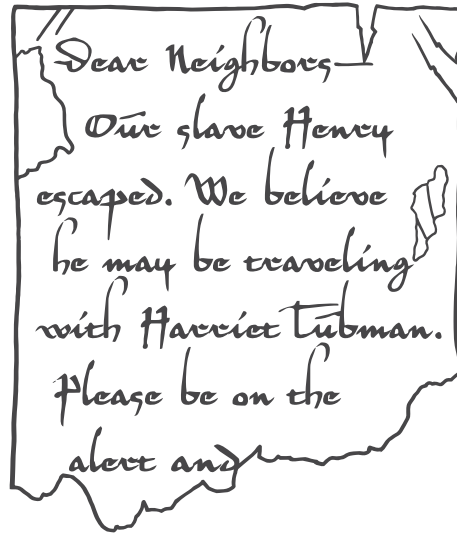 Dear Neighbors—
Our slave Henry
escaped. We believe
he may be traveling
with Harriet Tubman.
Please be on the
alert and